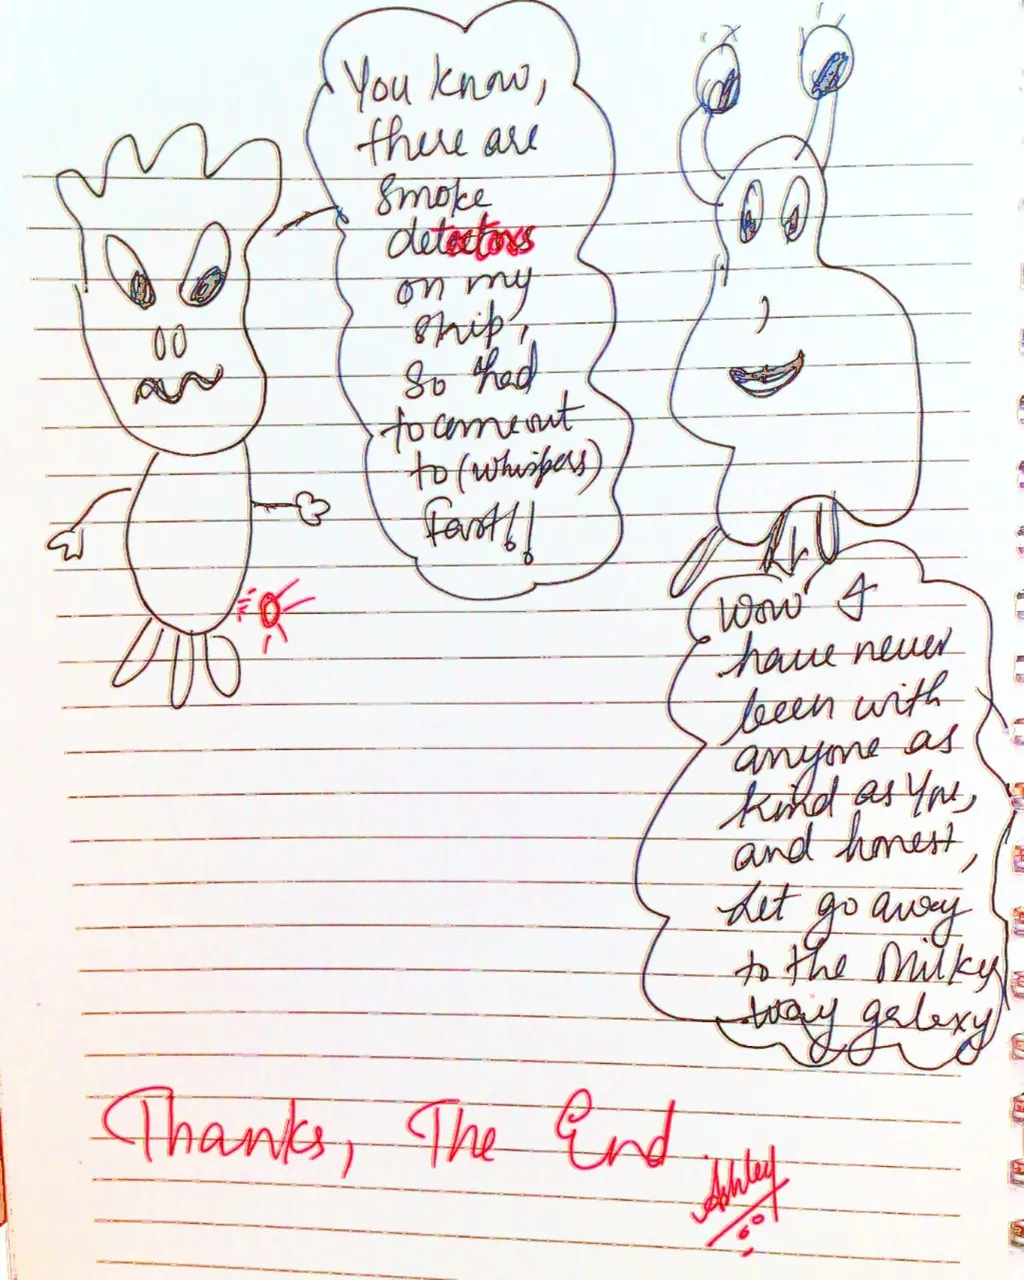 You know,
there are
smoke
detectors
on my
ship,
so had
to come out
to (whispers)
Fart!!
Wow I
have never
been with
anyone as
kind as you,
and honest,
Let go away
to the Milky
way galaxy
Thanks, The End
Ashley